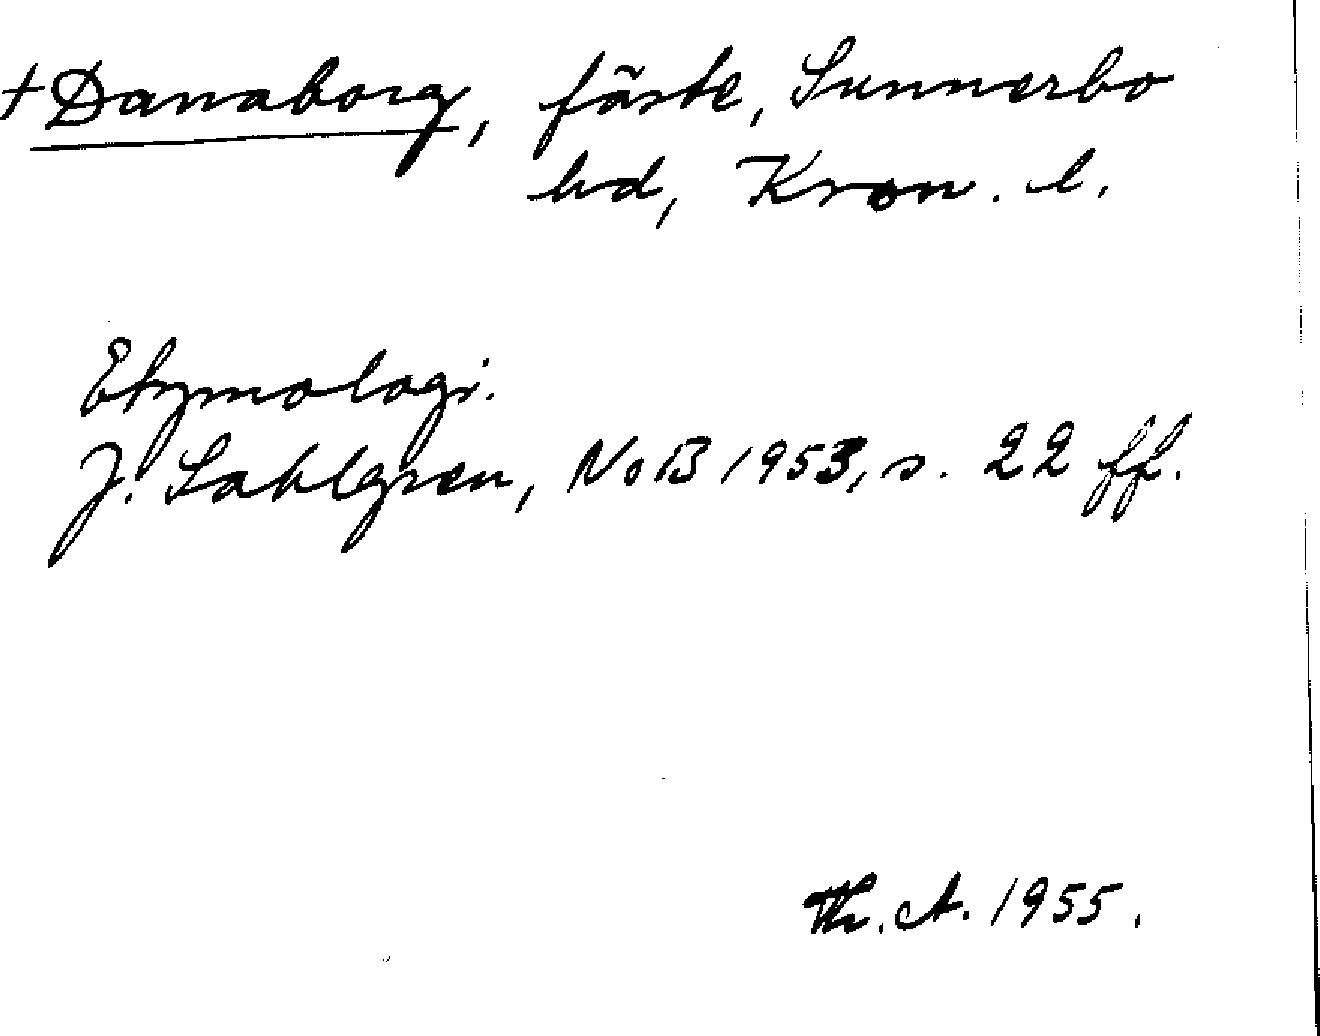 + Danaborg, fäste, Sunnerbo
hd, Kron. l.
Etymologi.
J. Sahlgren, NoB 1953, s. 22 ff.
Th. A. 1955.